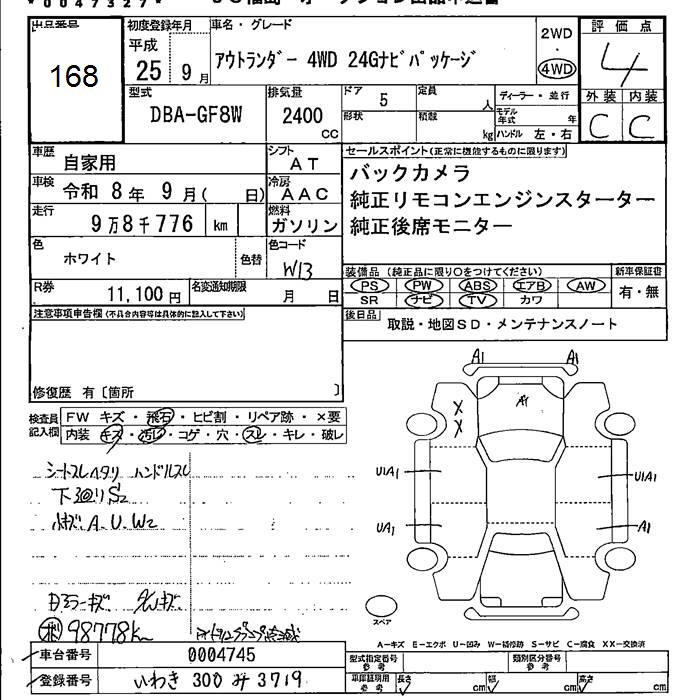 *0047327*
出品番号
168
初度登録年月
平成
25 9月
車名・グレード
アウトランダー 4WD 24Gナビパッケージ
2WD
・
4WD
評価点
4
外装 内装
C C
型式
DBA-GF8W
排気量
2400
cc
ドア
5
定員
人
形状
積載
kg
ディーラー・並行
モデル年式
年
ハンドル 左・右
車歴
自家用
シフト
AT
車検
令和 8年 9月( 日)
冷房
AAC
走行
9万8千776 km
燃料
ガソリン
色
ホワイト
色替
色コード
W13
R券
11,100円
名変通知期限
月 日
セールスポイント(正常に機能するものに限ります)
バックカメラ
純正リモコンエンジンスターター
純正後席モニター
装備品(純正品に限り○をつけてください)
PS PW ABS エアB AW
SR ナビ TV カワ
新車保証書
有・無
後日品
取説・地図SD・メンテナンスノート
注意事項申告欄(不具合内容等は具体的に記入して下さい)
修復歴 有〔箇所 〕
検査員記入欄
FW キズ・飛石・ヒビ割・リペア跡・×要
内装 キズ・汚れ・コゲ・穴・スレ・キレ・破レ
シートスレヘタリ ハンドルスレ
下回りS2
A.U.W2
98778k
A1 A1
A1
X
X
U1A1
U1A1
UA1
A1
スペア
A-キズ E-エクボ U-凹み W-補修跡 S-サビ C-腐食 XX-交換済
車台番号
0004745
登録番号
いわき 300 み 3719
型式指定番号
参考
類別区分番号
参考
車庫証明用
参考
長さ cm 幅 cm 高さ cm